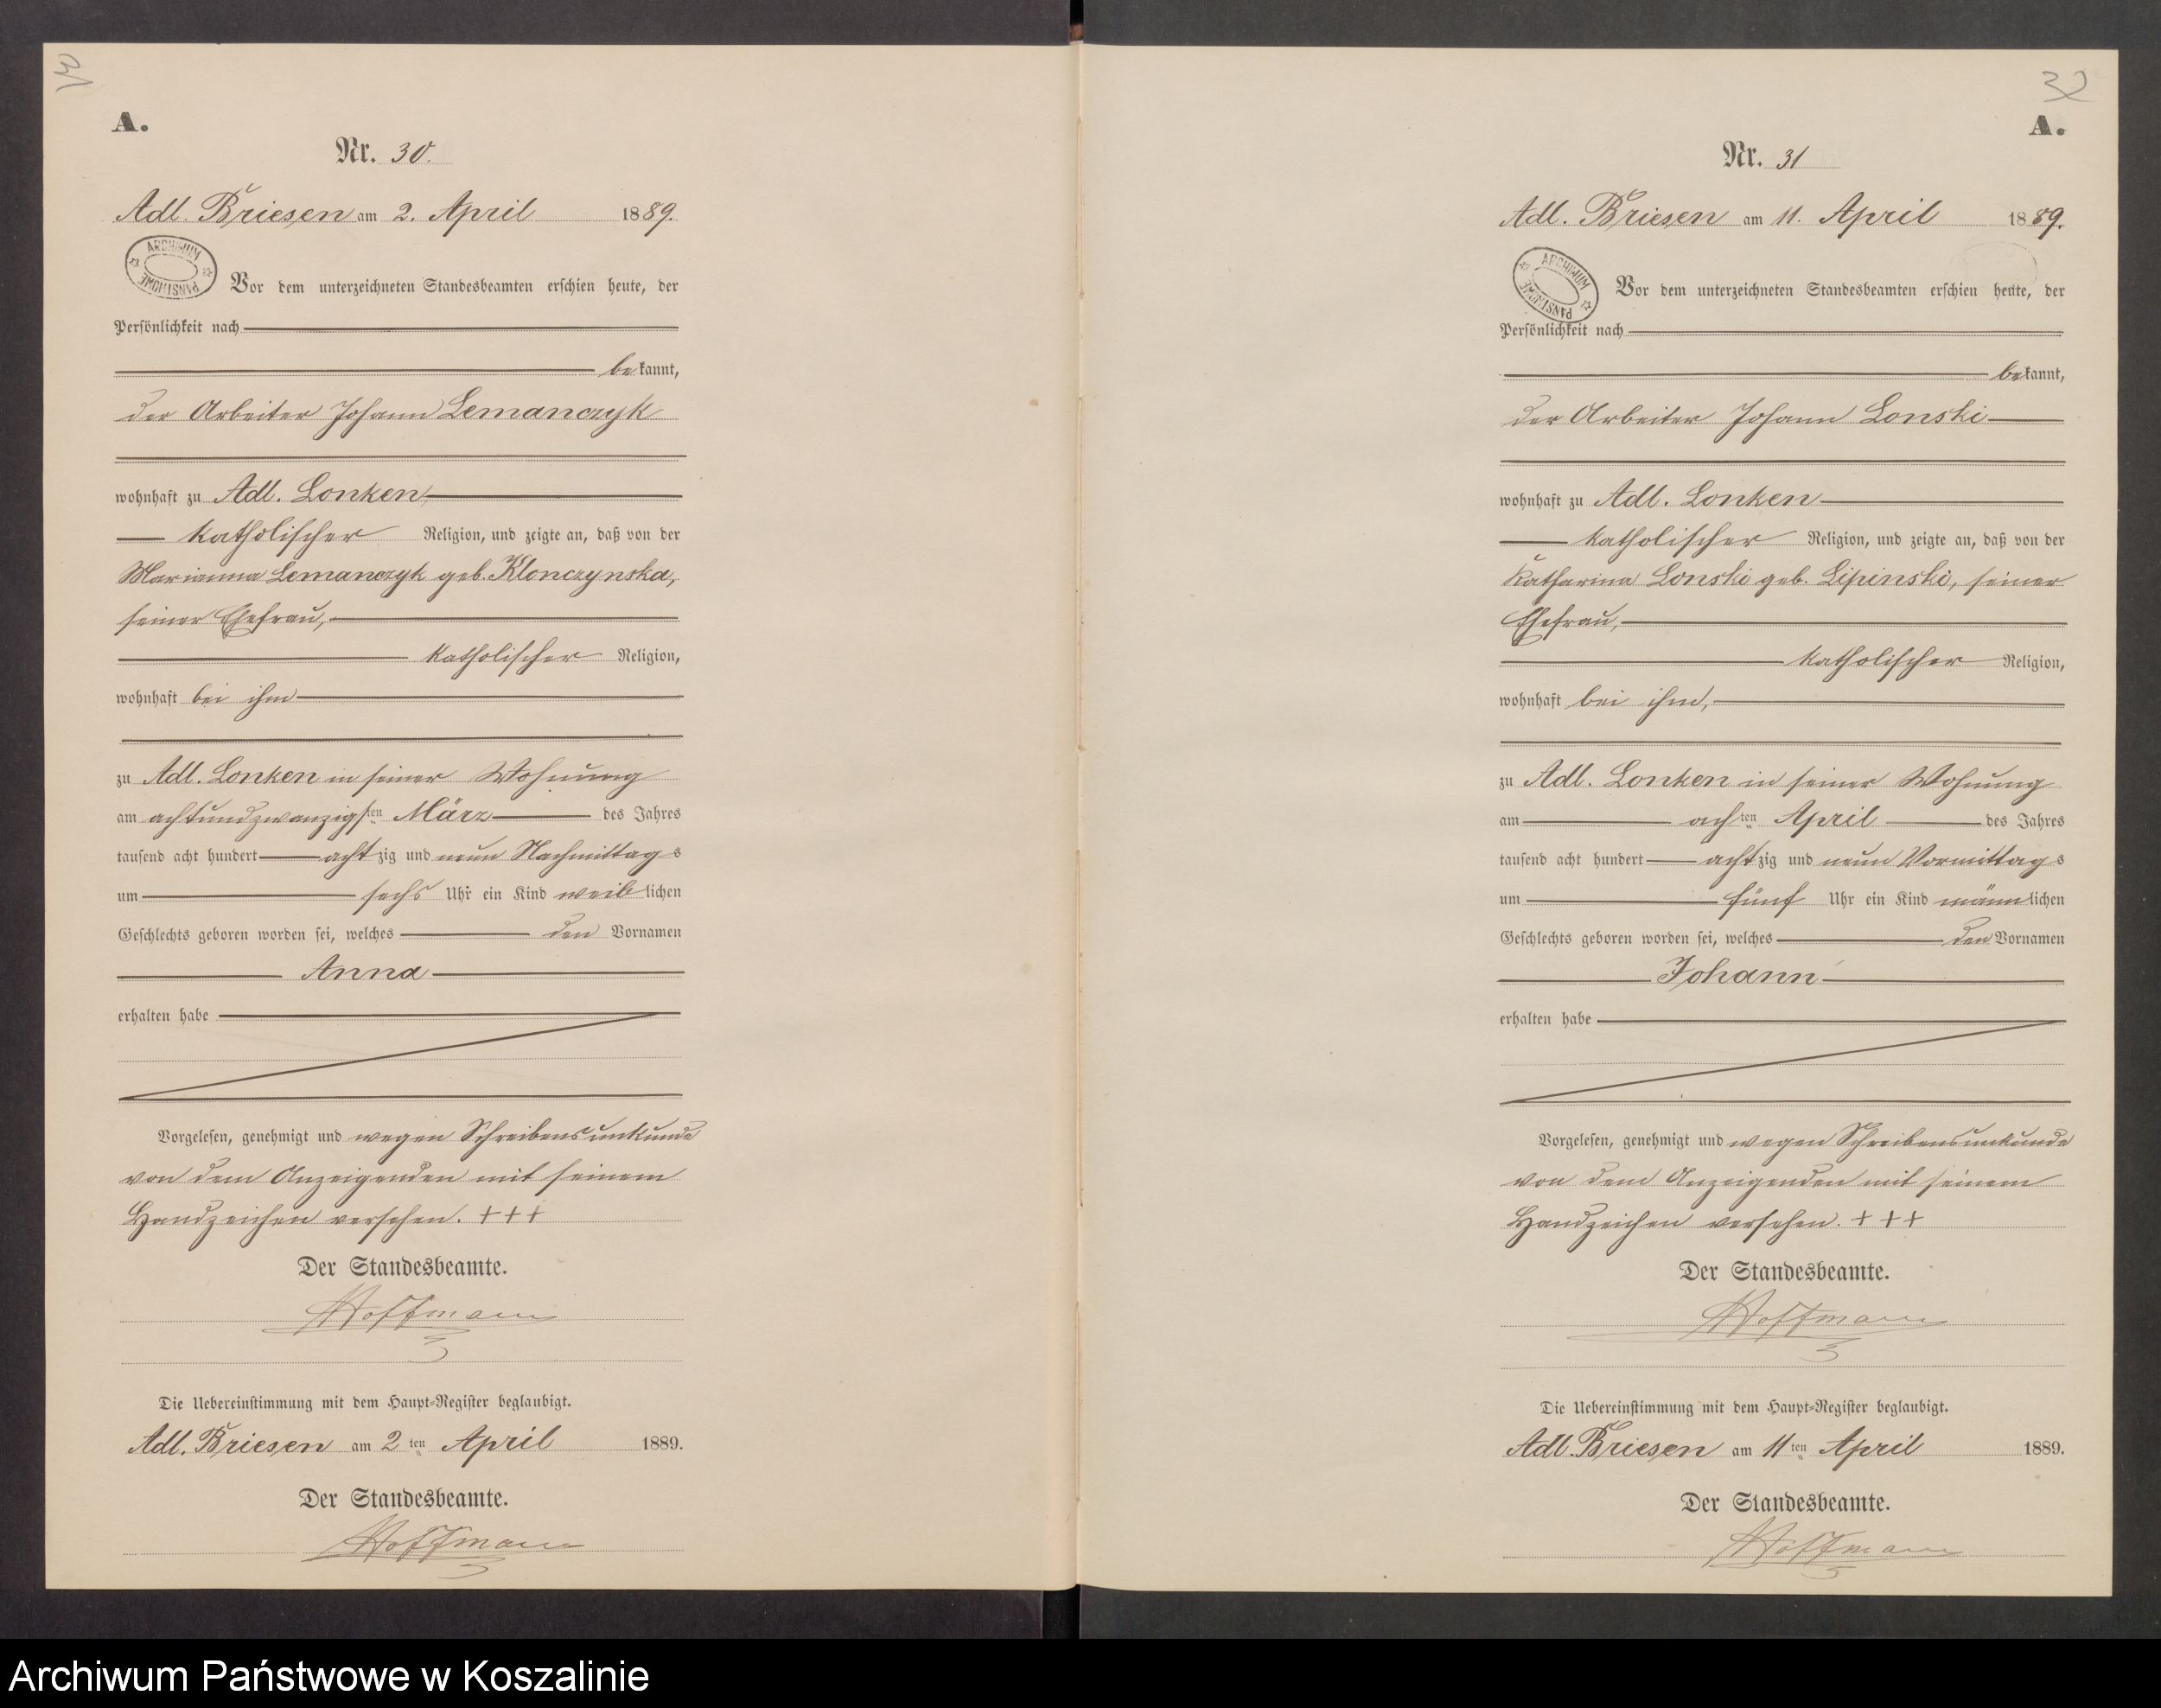 31
A.
Nr. 30.
Adl. Briesen am 2. April 1889.
ARCHIWUM PAŃSTWOWE
Vor dem unterzeichneten Standesbeamten erschien heute, der
Persönlichkeit nach
bekannt,
der Arbeiter Johann Lemanczyk
wohnhaft zu Adl. Lonken,
katholischer Religion, und zeigte an, daß von der
Marianna Lemanczyk geb. Klonczynska,
seiner Ehefrau,
katholischer Religion,
wohnhaft bei ihm
zu Adl. Lonken in seiner Wohnung
am achtundzwanzigsten März des Jahres
tausend acht hundert achtzig und neun Nachmittags
um sechs Uhr ein Kind weiblichen
Geschlechts geboren worden sei, welches den Vornamen
Anna
erhalten habe
Vorgelesen, genehmigt und wegen Schreibensunkunde
von dem Anzeigenden mit seinem
Handzeichen versehen. +++
Der Standesbeamte.
Hoffmann
Die Uebereinstimmung mit dem Haupt-Register beglaubigt.
Adl. Briesen am 2ten April 1889.
Der Standesbeamte.
Hoffmann
32
A.
Nr. 31
Adl. Briesen am 11. April 1889.
ARCHIWUM PAŃSTWOWE
Vor dem unterzeichneten Standesbeamten erschien heute, der
Persönlichkeit nach
bekannt,
der Arbeiter Johann Lonski
wohnhaft zu Adl. Lonken
katholischer Religion, und zeigte an, daß von der
Katharina Lonski geb. Lipinski, seiner
Ehefrau,
katholischer Religion,
wohnhaft bei ihm,
zu Adl. Lonken in seiner Wohnung
am achten April des Jahres
tausend acht hundert achtzig und neun Vormittags
um fünf Uhr ein Kind männlichen
Geschlechts geboren worden sei, welches den Vornamen
Johann
erhalten habe
Vorgelesen, genehmigt und wegen Schreibensunkunde
von dem Anzeigenden mit seinem
Handzeichen versehen. +++
Der Standesbeamte.
Hoffmann
Die Uebereinstimmung mit dem Haupt-Register beglaubigt.
Adl. Briesen am 11ten April 1889.
Der Standesbeamte.
Hoffmann
Archiwum Państwowe w Koszalinie